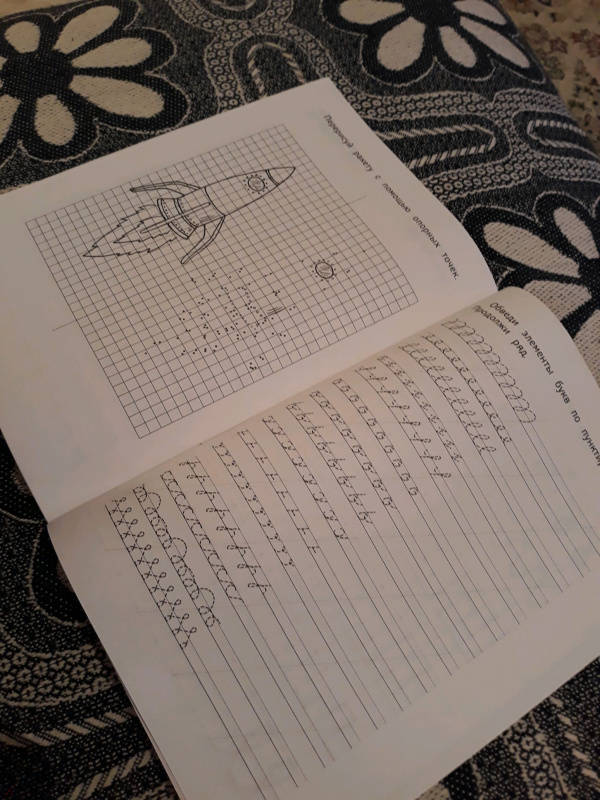 Перерисуй ракету с помощью опорных точек.
Обведи элементы букв по
продолжи ряд